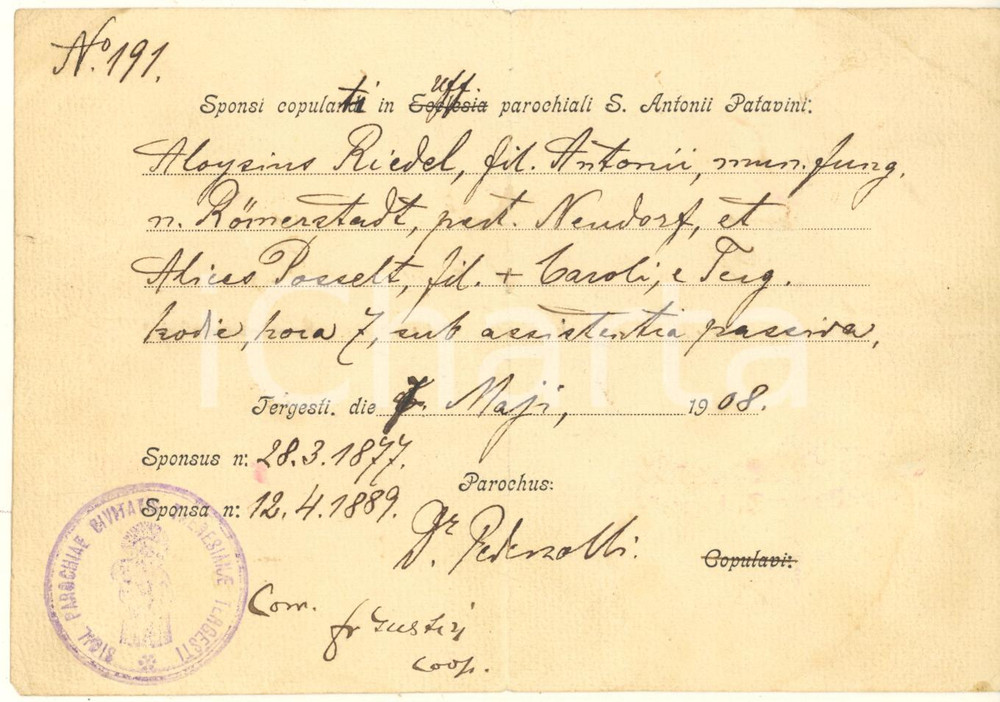 No. 191.
Sponsi copulati in Ecclesia uff. parochiali S. Antonii Patavini:
Aloysius Riedel, fil. Antonii, mun. fung.
n. Römerstadt, pert. Neudorf, et
Alices Posselt, fil. + Caroli, e Terg.
hodie, hora 7, sub assistentia passiva,
Tergesti. die 7. Maji, 1908.
Sponsus n: 28.3.1877.
Parochus:
Sponsa n: 12.4.1889.
Dr. Pederzolli.
Copulavi:
SIGIL PAROCHIAE CIVITATIS THERESIANAE TERGESTI
Com.
coop.
iCharta